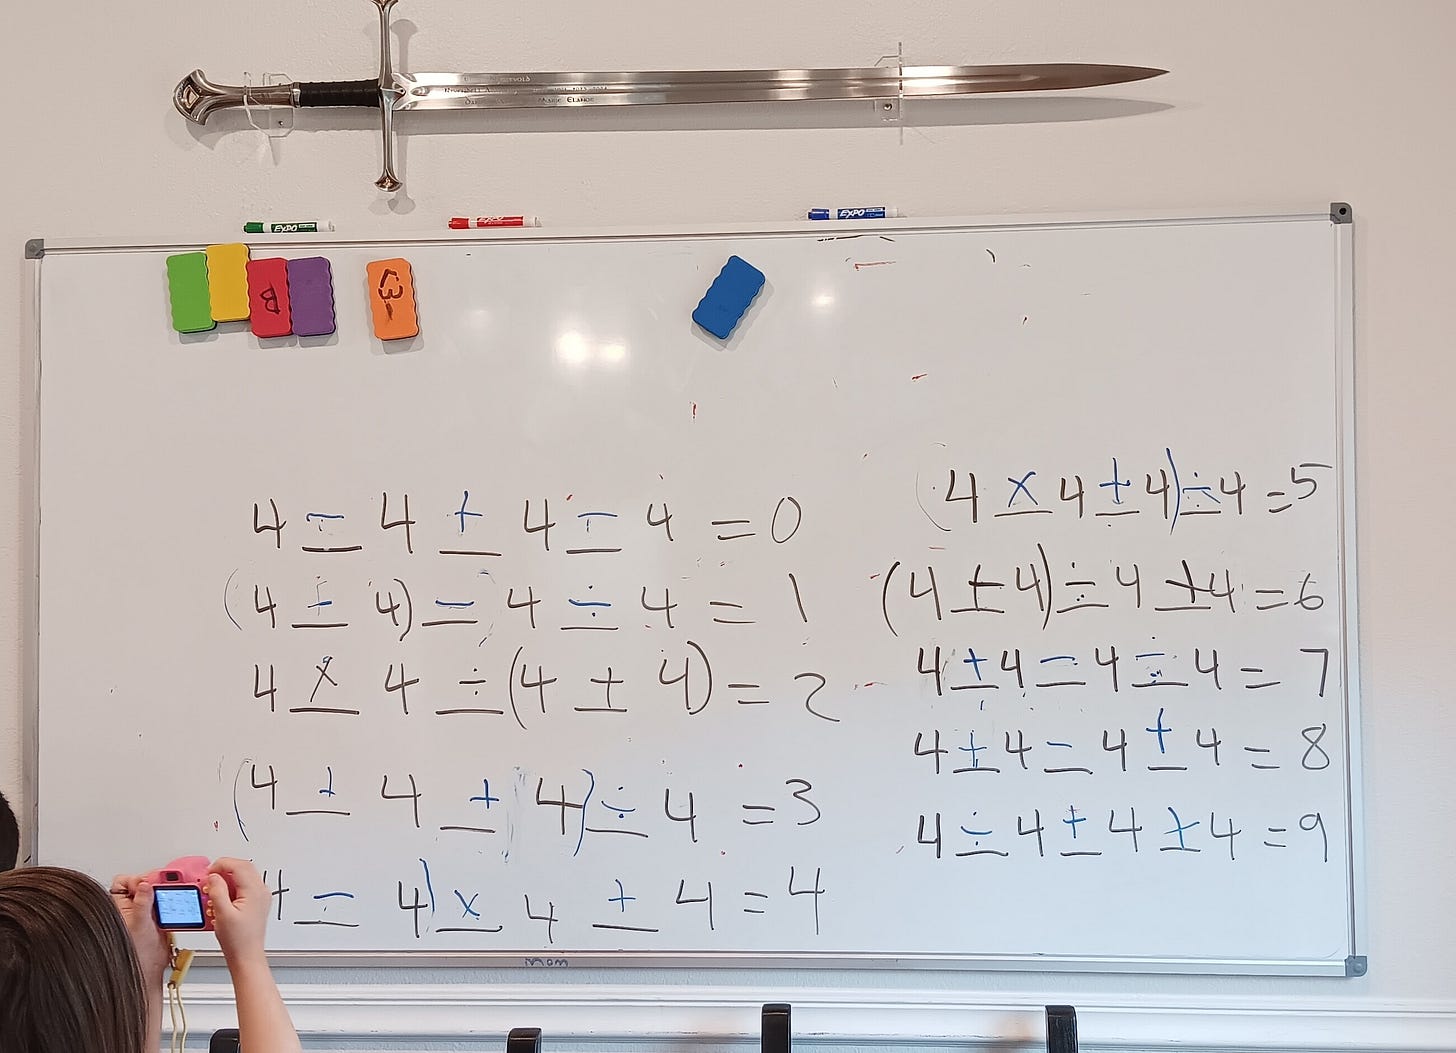 EXPO
EXPO
EXPO
B
4 − 4 + 4 − 4 = 0
(4 + 4) − 4 ÷ 4 = 1
4 × 4 ÷ (4 + 4) = 2
(4 + 4 + 4) ÷ 4 = 3
4 − 4) × 4 + 4 = 4
(4 × 4 + 4) ÷ 4 = 5
(4 + 4) ÷ 4 + 4 = 6
4 + 4 − 4 ÷ 4 = 7
4 + 4 − 4 + 4 = 8
4 ÷ 4 + 4 + 4 = 9
mom